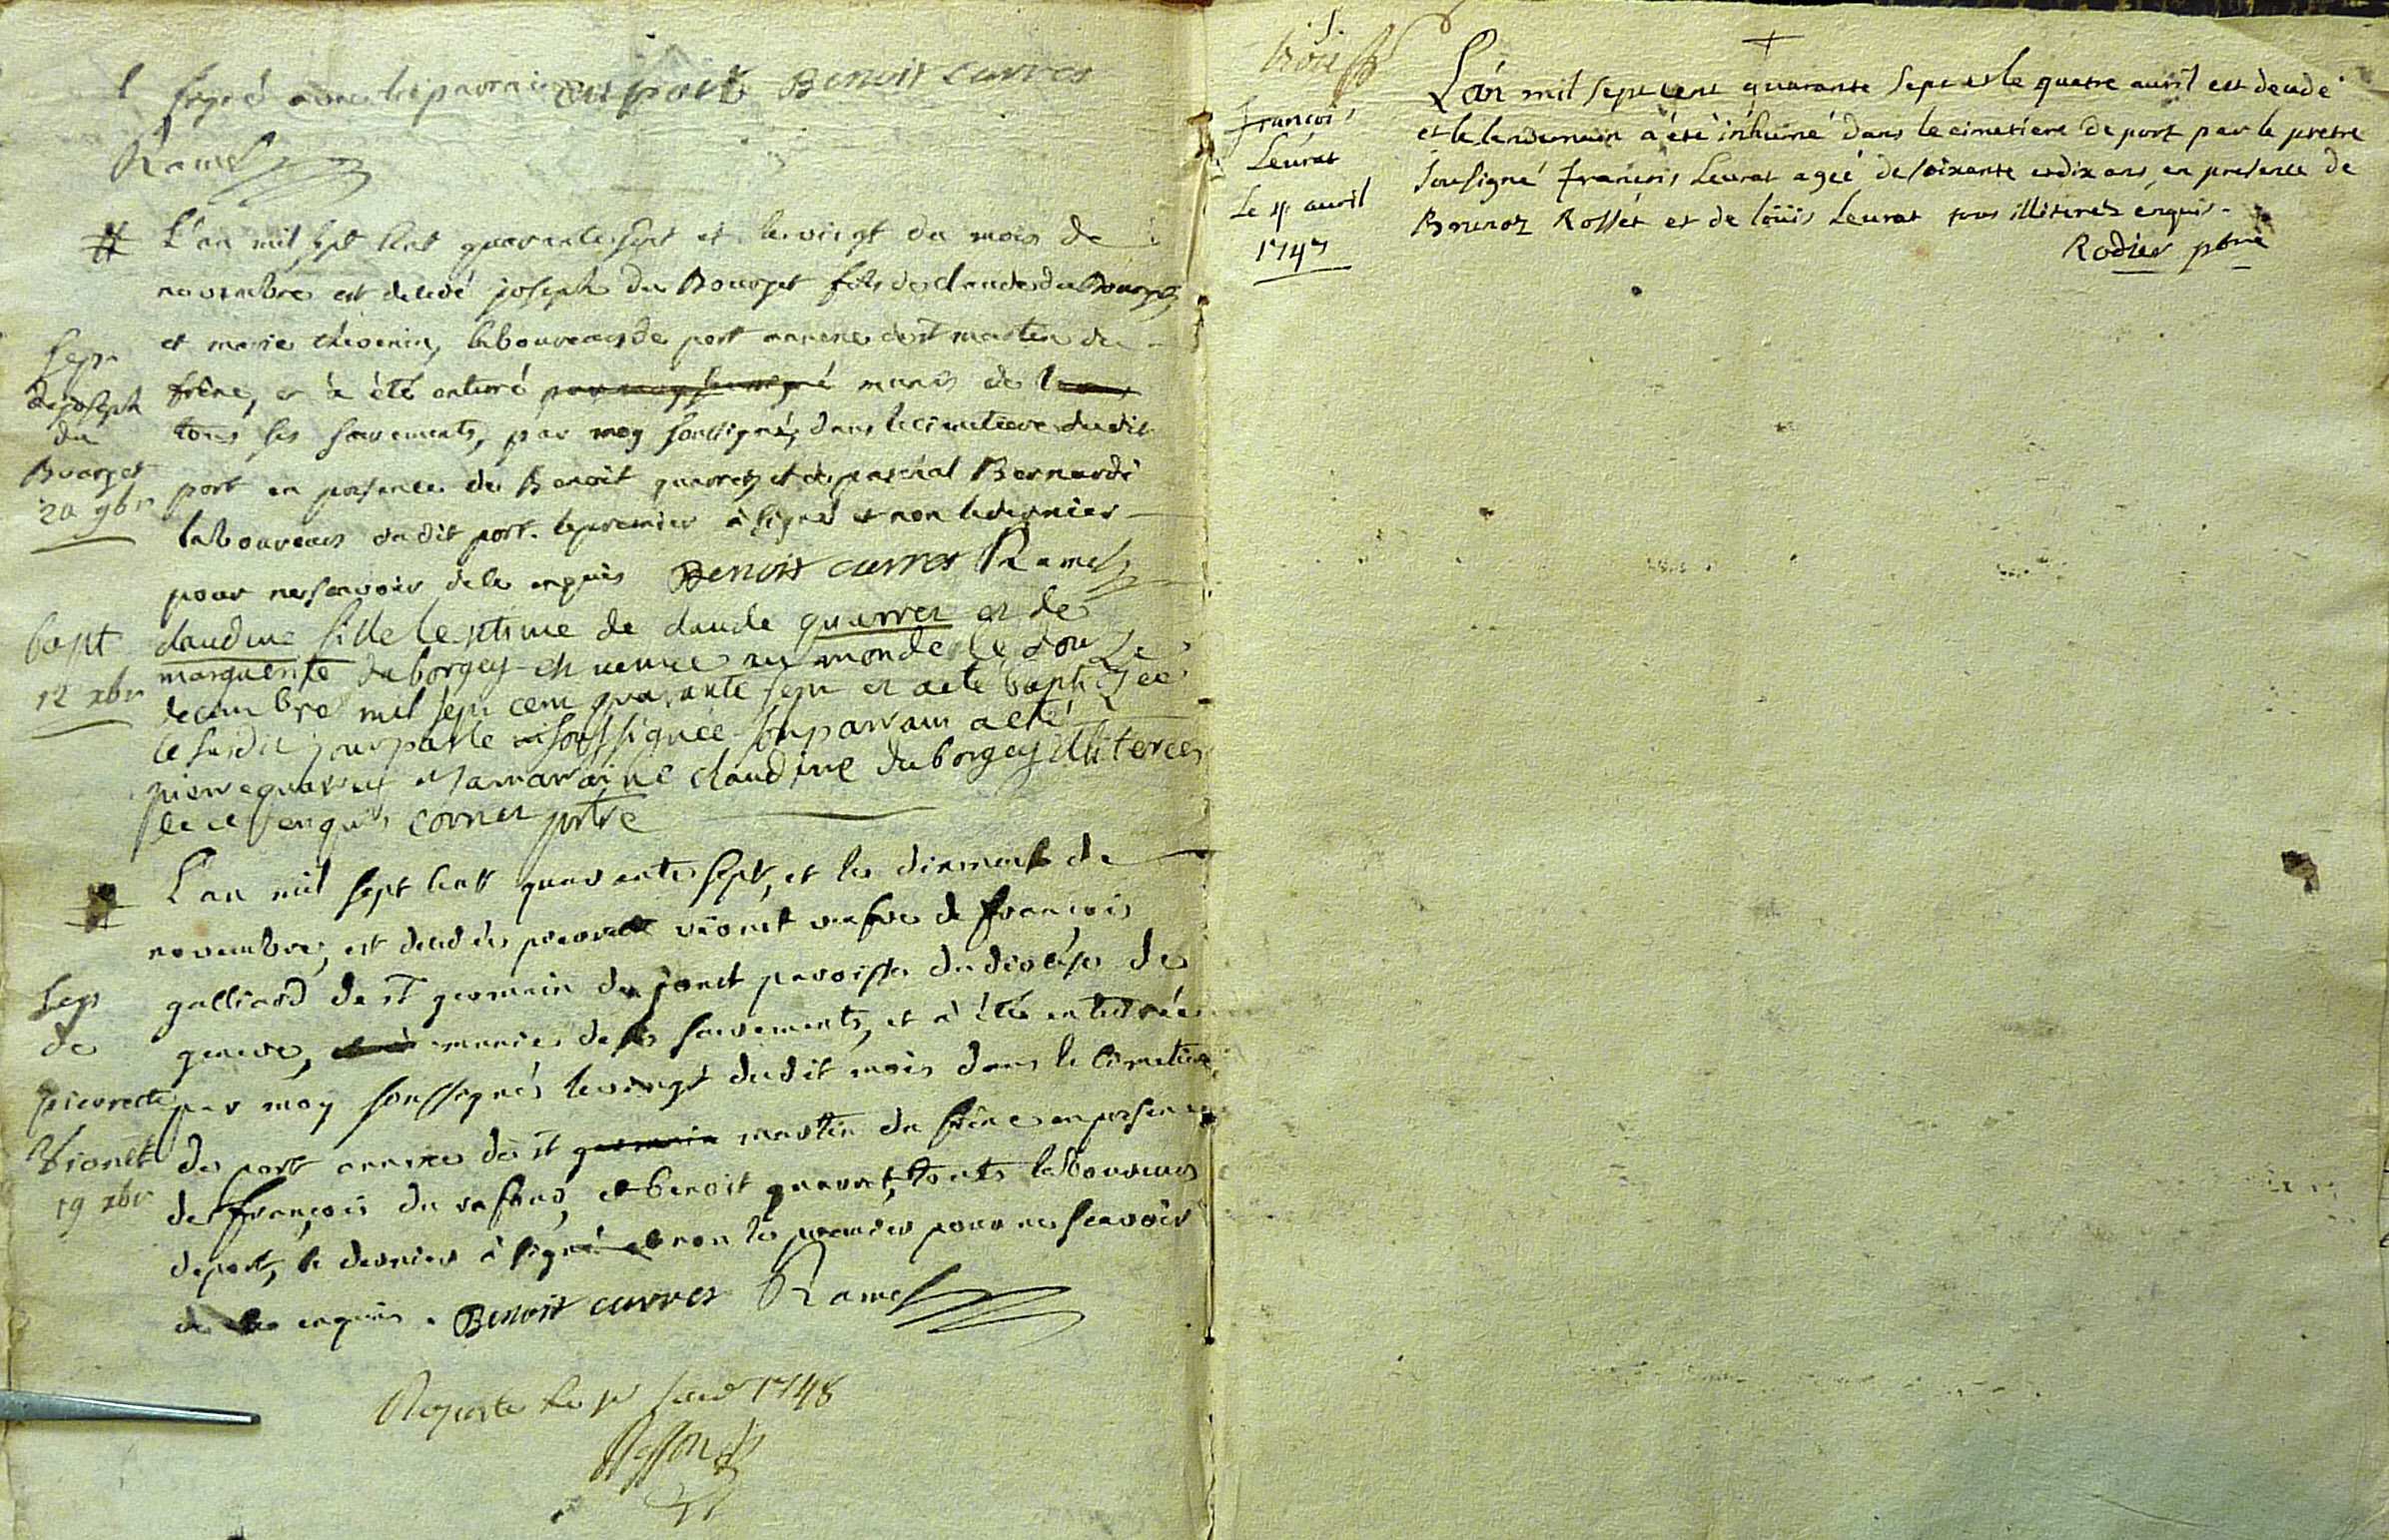 signé avec le parrain Benoit curres
Ramel
L'an mil sept cent quarante sept et le vingt du mois de
novembre est decedé joseph du Bourget fils de claude du Bourget
et marie thevenin, laboureurs de port annexe de st martin du
frêne, et à été enterré par moy soussigné munis de
tous ses sacrements, par moy soussigné, dans le cimetiere dudit
port en presence de Benoit quarret et de pascal Bernardi
laboureurs dudit port. le premier à signé et non le dernier
pour ne scavoir de ce enquis Benoit curres Ramel
Sepr
de joseph
du
Bourget
20 9br
claudine fille legitime de claude quarret et de
marguerite duborgey est venue au monde le douze
decembre mil sept cent quarante sept et a ete baptisee
le susdit jour par le soussignée son parrain a eté
pierre quarret et sa marraine claudine duborgey illiterees
de ce enquis cornet ptre
bapt
12 xbr
L'an mil sept cent quarante sept, et le dixneuf de
novembre, est decedée pierrette vionet vefve de françois
galliard de st germain de jouct paroisse du diocese de
geneve, munie de ses sacrements, et à été enterrée
par moy soussigné le vingt dudit mois dans le cimetiere
de port annexe de st germain martin du frêne en presence
de françois du rafour, et benoit quarret, touts laboureurs
de port, le dernier à signé et non le premier pour ne scavoir
de ce enquis. Benoit curres Ramel
Sepr
de
pierrette
Vionet
19 xbr
1748
L'an mil sept cent quarante sept et le quatre avril est decedé
et le lendemain a été inhumé dans le cimetiere de port par le prestre
sousigné françois Leurat agée de soixante et dix ans, en presence de
Rosset et de loüis Leurat tous illiterés enquis.
Rodier ptre
françois
Leurat
Le 4 avril
1747